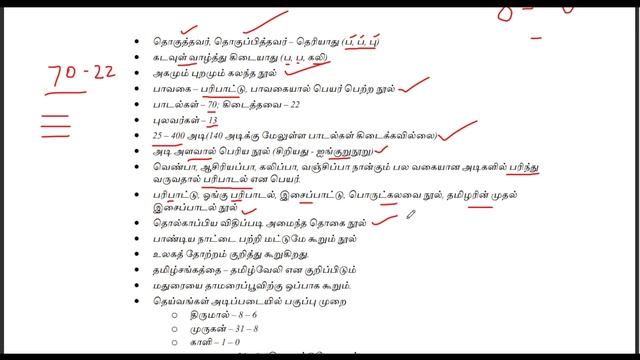 70 - 22
தொகுத்தவர், தொகுப்பித்தவர் – தெரியாது (ப, ப, பு)
கடவுள் வாழ்த்து கிடையாது (ப, ப, கலி)
அகமும் புறமும் கலந்த நூல்
பாவகை – பரிபாட்டு, பாவகையால் பெயர் பெற்ற நூல்
பாடல்கள் – 70; கிடைத்தவை – 22
புலவர்கள் – 13
25 – 400 அடி(140 அடிக்கு மேலுள்ள பாடல்கள் கிடைக்கவில்லை)
அடி அளவால் பெரிய நூல் (சிறியது - ஐங்குறுநூறு)
வெண்பா, ஆசிரியப்பா, கலிப்பா, வஞ்சிப்பா நான்கும் பல வகையான அடிகளில் பரிந்து
வருவதால் பரிபாடல் என பெயர்.
பரிபாட்டு, ஓங்கு பரிபாடல், இசைப்பாட்டு, பொருட்கலவை நூல், தமிழரின் முதல்
இசைப்பாடல் நூல்
தொல்காப்பிய விதிப்படி அமைந்த தொகை நூல்
பாண்டிய நாட்டை பற்றி மட்டுமே கூறும் நூல்
உலகத் தோற்றம் குறித்து கூறுகிறது.
தமிழ்சங்கத்தை – தமிழ்வேலி என குறிப்பிடும்
மதுரையை தாமரைப்பூவிற்கு ஒப்பாக கூறும்.
தெய்வங்கள் அடிப்படையில் பகுப்பு முறை
திருமால் – 8 – 6
முருகன் – 31 – 8
காளி – 1 – 0